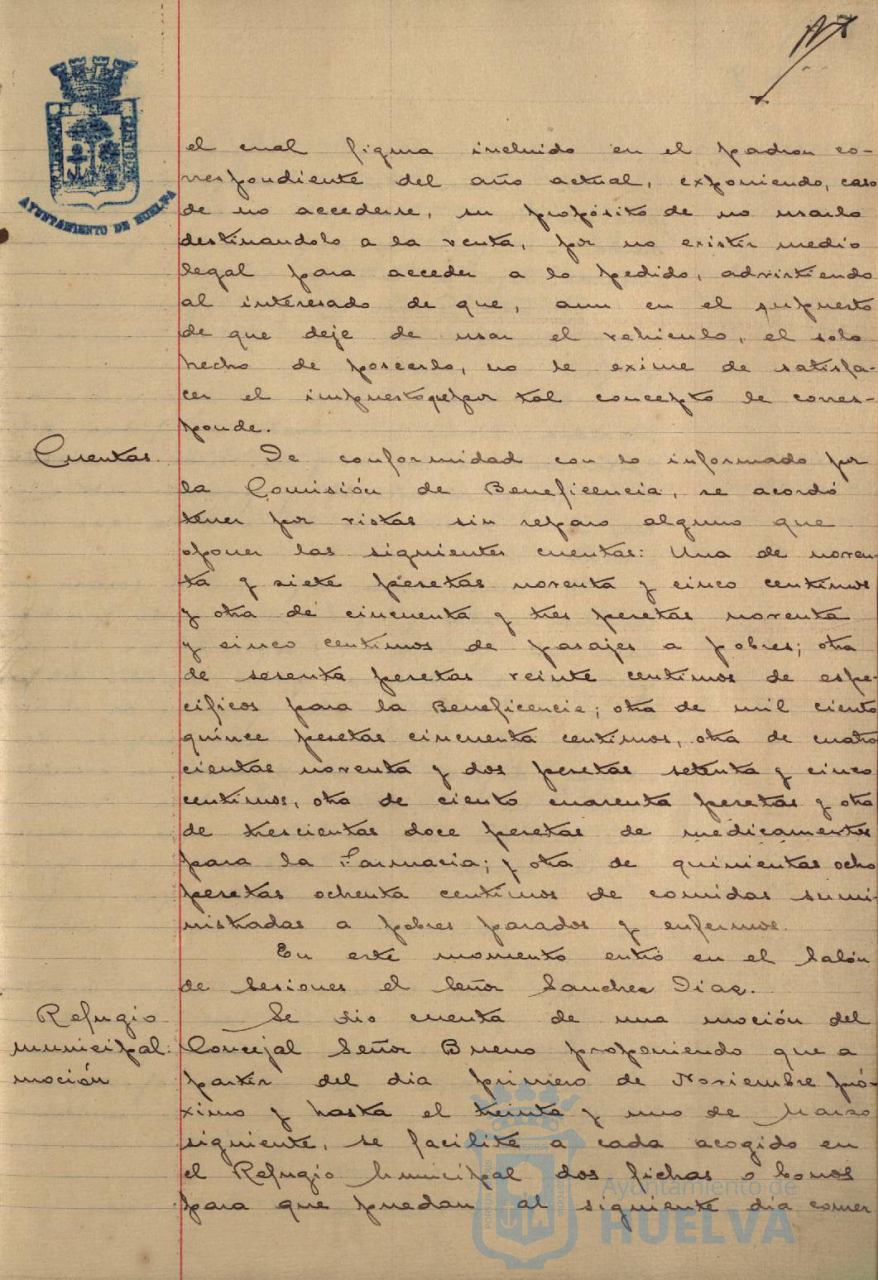 AYUNTAMIENTO DE HUELVA
el cual figura incluido en el padron co-
rrespondiente del año actual, exponiendo, caso
de no accederse, su propósito de no usarlo
destinandolo a la venta, por no existir medio
legal para acceder a lo pedido, advirtiendo
al interesado de que, aun en el supuesto
de que deje de usar el vehiculo, el solo
hecho de poseerlo, no le exime de satisfa-
cer el impuesto que por tal concepto le corres-
ponde.
Cuentas.
De conformidad con lo informado por
la Comisión de Beneficencia, se acordó
tener por vistas sin reparo alguno que
oponer las siguientes cuentas: Una de noven-
ta y siete pesetas noventa y cinco centimos
y otra de cincuenta y tres pesetas noventa
y cinco centimos de pasajes a pobres; otra
de sesenta pesetas veinte centimos de espe-
cificos para la Beneficencia; otra de mil ciento
quince pesetas cincuenta centimos, otra de cuatro
cientas noventa y dos pesetas setenta y cinco
centimos, otra de ciento cuarenta pesetas y otra
de trescientas doce pesetas de medicamentos
para la Farmacia; y otra de quinientas ocho
pesetas ochenta centimos de comidas sumi-
nistradas a pobres parados y enfermos.
En este momento entró en el Salón
de Sesiones el Señor Sanchez Diaz.
Refugio
municipal:
moción
Se dio cuenta de una moción del
Concejal Señor Bueno proponiendo que a
partir del dia primero de Noviembre pró-
ximo y hasta el treinta y uno de Marzo
siguiente, se facilite a cada acogido en
el Refugio Municipal dos fichas o bonos
para que puedan al siguiente dia comer
Ayuntamiento de
HUELVA